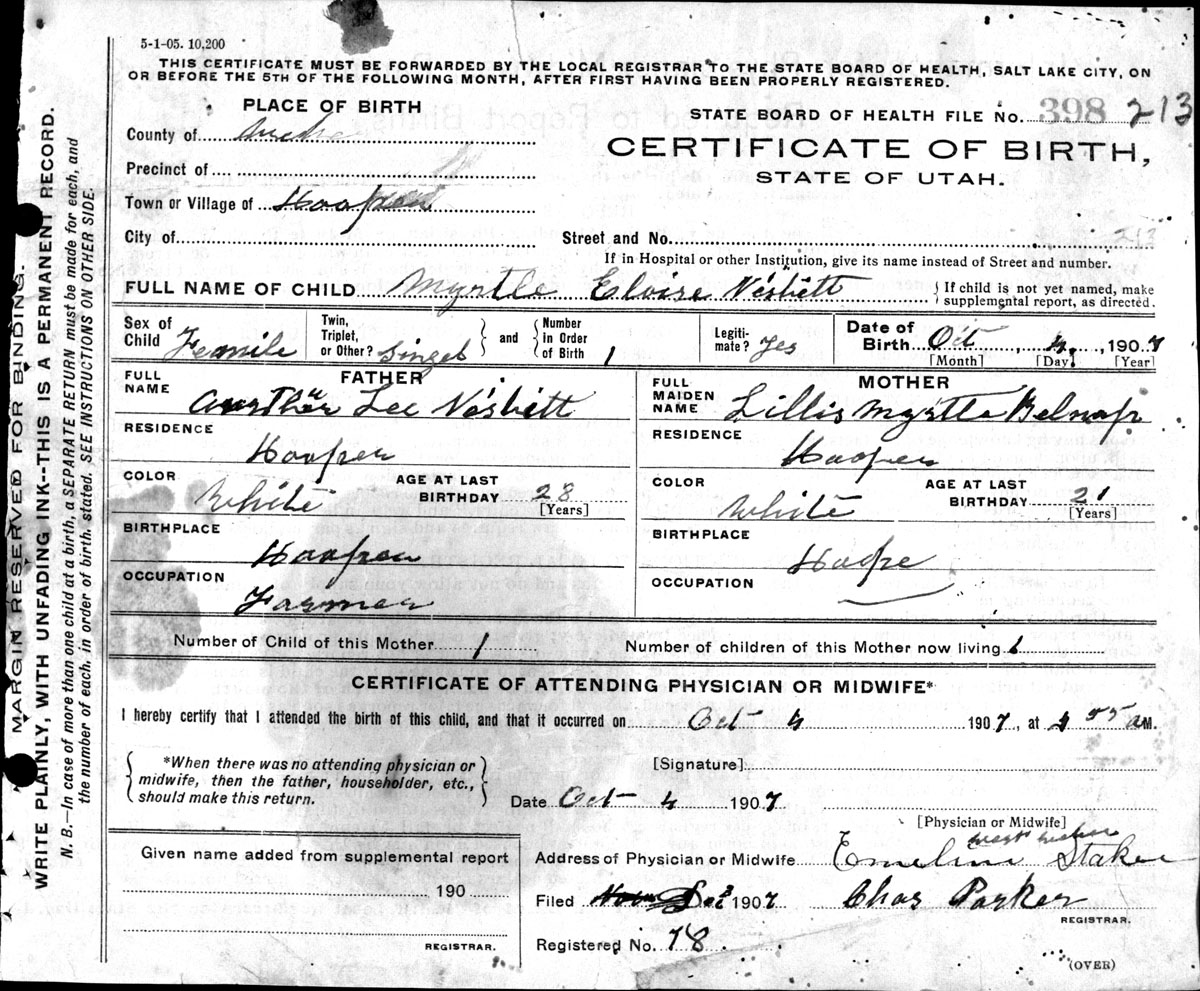 5-1-05. 10,200
THIS CERTIFICATE MUST BE FORWARDED BY THE LOCAL REGISTRAR TO THE STATE BOARD OF HEALTH, SALT LAKE CITY, ON
OR BEFORE THE 5TH OF THE FOLLOWING MONTH, AFTER FIRST HAVING BEEN PROPERLY REGISTERED.
PLACE OF BIRTH
STATE BOARD OF HEALTH FILE NO. 398 213
County of
CERTIFICATE OF BIRTH,
STATE OF UTAH.
Precinct of
Town or Village of Hooper
City of
Street and No. 213
If in Hospital or other Institution, give its name instead of Street and number.
FULL NAME OF CHILD Myrtle Eloise Nesbett
{ If child is not yet named, make
supplemental report, as directed.
Sex of Child Femile
Twin, Triplet, or Other? Singel } and { Number in Order of Birth 1
Legiti-mate? Yes
Date of Birth Oct, 4, 1907
[Month] [Day] [Year]
FATHER
FULL NAME Aurther Lee Nesbett
RESIDENCE Hooper
COLOR White
AGE AT LAST BIRTHDAY 28 [Years]
BIRTHPLACE Hooper
OCCUPATION Farmer
MOTHER
FULL MAIDEN NAME Lillis Myrtle Belnap
RESIDENCE Hooper
COLOR White
AGE AT LAST BIRTHDAY 21 [Years]
BIRTHPLACE Hoope
OCCUPATION
Number of Child of this Mother 1
Number of children of this Mother now living 1
CERTIFICATE OF ATTENDING PHYSICIAN OR MIDWIFE*
I hereby certify that I attended the birth of this child, and that it occurred on Oct 4 1907, at 55 a M.
{ *When there was no attending physician or
midwife, then the father, householder, etc.,
should make this return. }
[Signature]
Date Oct 4 1907
[Physician or Midwife]
Address of Physician or Midwife Emeline Staker
Filed Dec 1907 Chas Parker
REGISTRAR.
Registered No. 78.
Given name added from supplemental report
190
REGISTRAR.
(OVER)
MARGIN RESERVED FOR BINDING.
WRITE PLAINLY, WITH UNFADING INK--THIS IS A PERMANENT RECORD.
N. B.—In case of more than one child at a birth, a SEPARATE RETURN must be made for each, and
the number of each, in order of birth, stated. SEE INSTRUCTIONS ON OTHER SIDE.